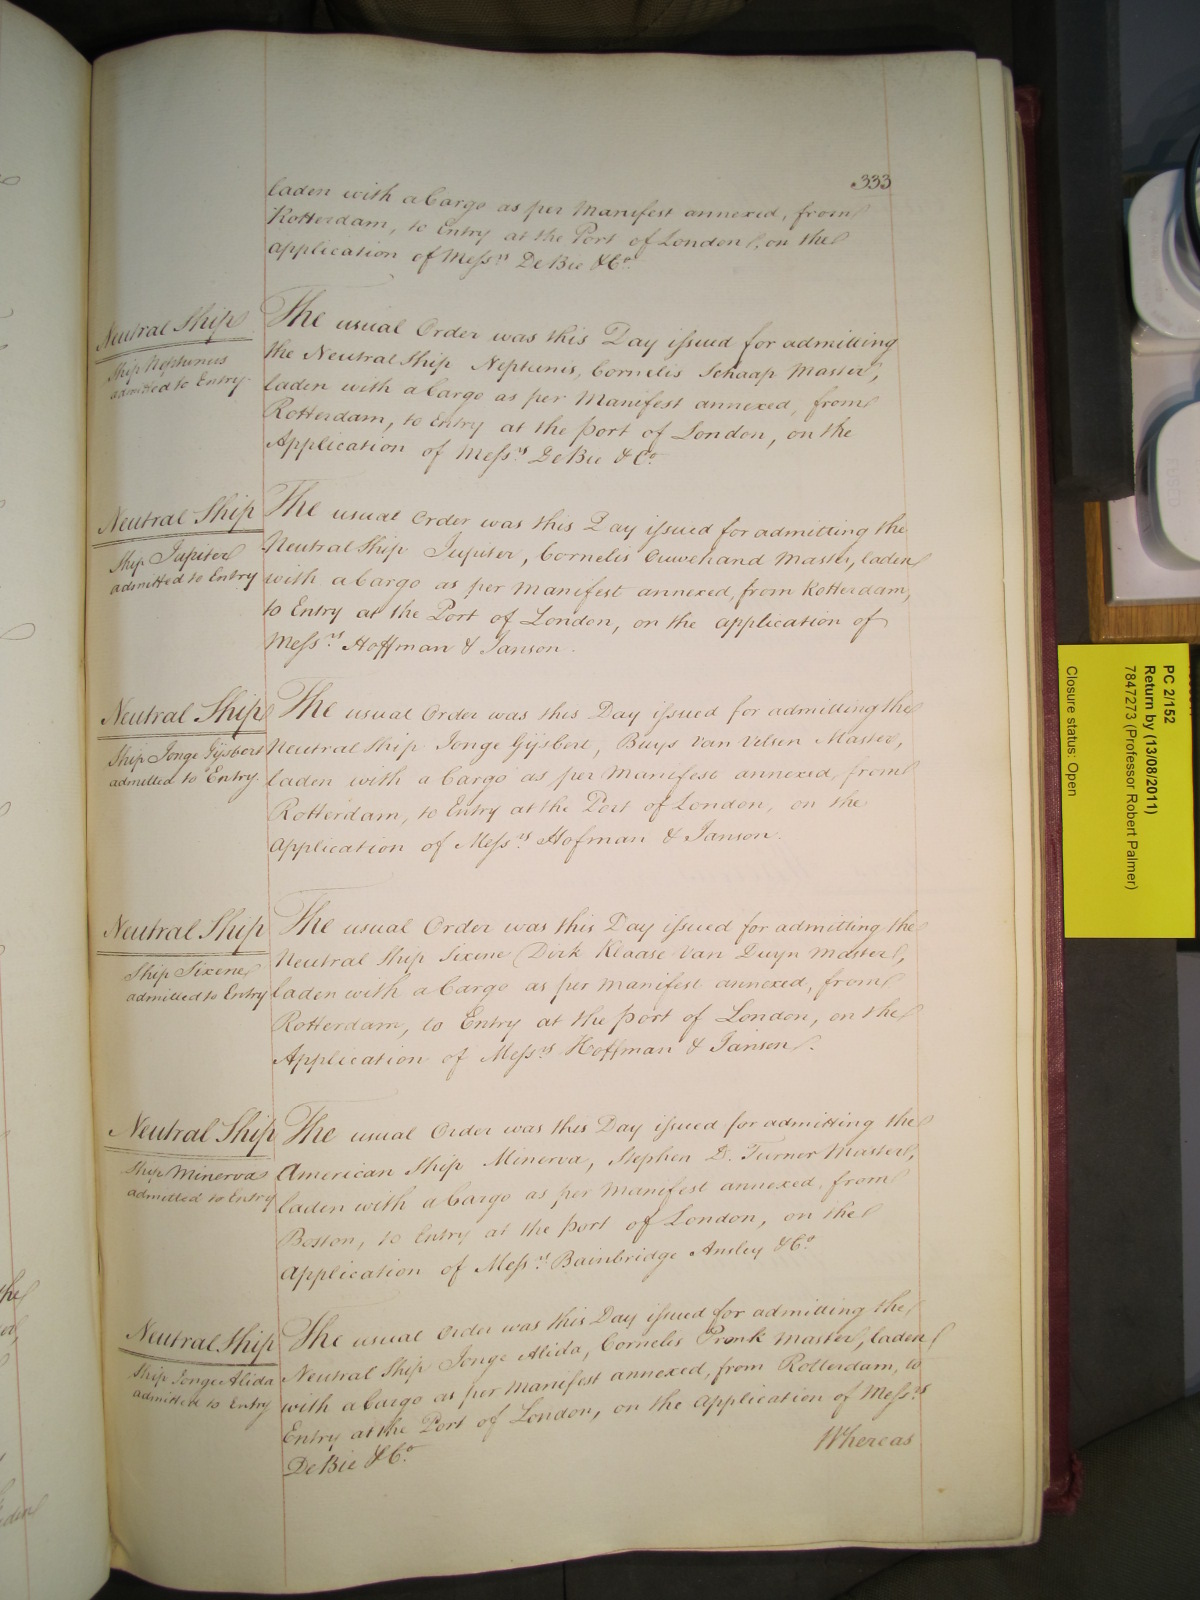 333
laden with a Cargo as per Manifest annexed, from
Rotterdam, to Entry at the Port of London, on the
application of Messrs De Bie & Co.
Neutral Ship
Ship Neptunus
admitted to Entry.
The usual Order was this Day issued for admitting
the Neutral Ship Neptunis, Cornelis Schaap Master,
laden with a Cargo as per Manifest annexed, from
Rotterdam, to Entry at the port of London, on the
Application of Messrs De Bie & Co.
Neutral Ship
Ship Jupiter
admitted to Entry
The usual Order was this Day issued for admitting the
Neutral Ship Jupiter, Cornelis Ouwehand Master, laden
with a Cargo as per Manifest annexed, from Rotterdam,
to Entry at the Port of London, on the application of
Messrs Hoffman & Janson.
Neutral Ship
Ship Jonge Gijsbert
admitted to Entry.
The usual Order was this Day issued for admitting the
Neutral Ship Jonge Gijsbert, Buys Van Velsen Master,
laden with a Cargo as per Manifest annexed, from
Rotterdam, to Entry at the Port of London, on the
application of Messrs Hofman & Janson.
Neutral Ship
Ship Sixene
admitted to Entry
The usual Order was this Day issued for admitting the
Neutral Ship Sixene Dirk Klaase Van Duyn Master,
laden with a Cargo as per Manifest annexed, from
Rotterdam, to Entry at the port of London, on the
Application of Messrs Hoffman & Janson.
Neutral Ship
Ship Minerva
admitted to Entry
The usual Order was this Day issued for admitting the
American Ship Minerva, Stephen D. Turner Master,
laden with a Cargo as per Manifest annexed, from
Boston, to Entry at the port of London, on the
application of Messrs Bainbridge Ansley & Co.
Neutral Ship
Ship Jonge Alida
admitted to Entry
The usual Order was this Day issued for admitting the
Neutral Ship Jonge Alida, Cornelis Pronk Master, laden
with a Cargo as per Manifest annexed, from Rotterdam, to
Entry at the Port of London, on the Application of Messrs
De Bie & Co.
Whereas
PC 2/152
Return by (13/08/2011)
7847273 (Professor Robert Palmer)
Closure status: Open